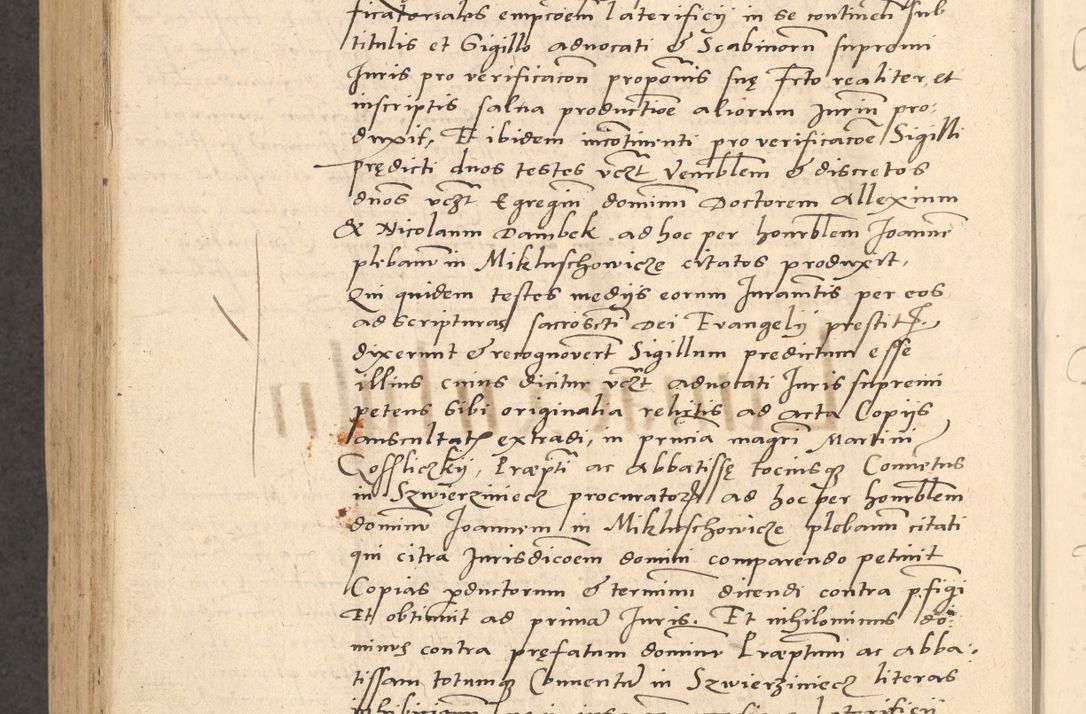 ficatoriales empcoem laterificij in se continen sub
titulis et Sigillo aduocati & Scabinorn supremi
Juris pro verificacon proponis suę frto realiter, et
inscriptis salua productioe aliorum Jurium pro:
duxit, Et ibidem incotinenti pro verificacoe Sigilli
prędicti duos testes vczt venerblem & discretos
dnos vczt Egregim dominum Doctorem Allexium
& Nicolaum Dambek ad hoc per honrblem Joanne
plebanum in Mikluschowicze citatos produxit,
Qui quidem testes medijs eorum Juramtis per eos
ad scripturas sacroscti Dei Evangelij prestit
dixerunt & recognovert Sigillum predictum esse
illius cuius dicitur vczt aduocati Juris supremi
petens sibi originalia relictis ad acta Copijs
auscultatis extradi, in pruia magri Martini
Gossliczkij, Præpti ac Abbatissę tociusq Conuetus
in Szwierziniecz procuratoris ad hoc per honrblem
dominum Joannem in Mikluschowicze plebanum citati
qui citra Jurisdicoem domini comparendo petiuit
Copias pductorum & terminum dicendi contra pfigi
Et obtinuit ad prima Juris. Et nihilominus do:
minus contra pręfatum dominum Præptum ac abba:
tissam totumq Conuentu in Szwierziniecz literas